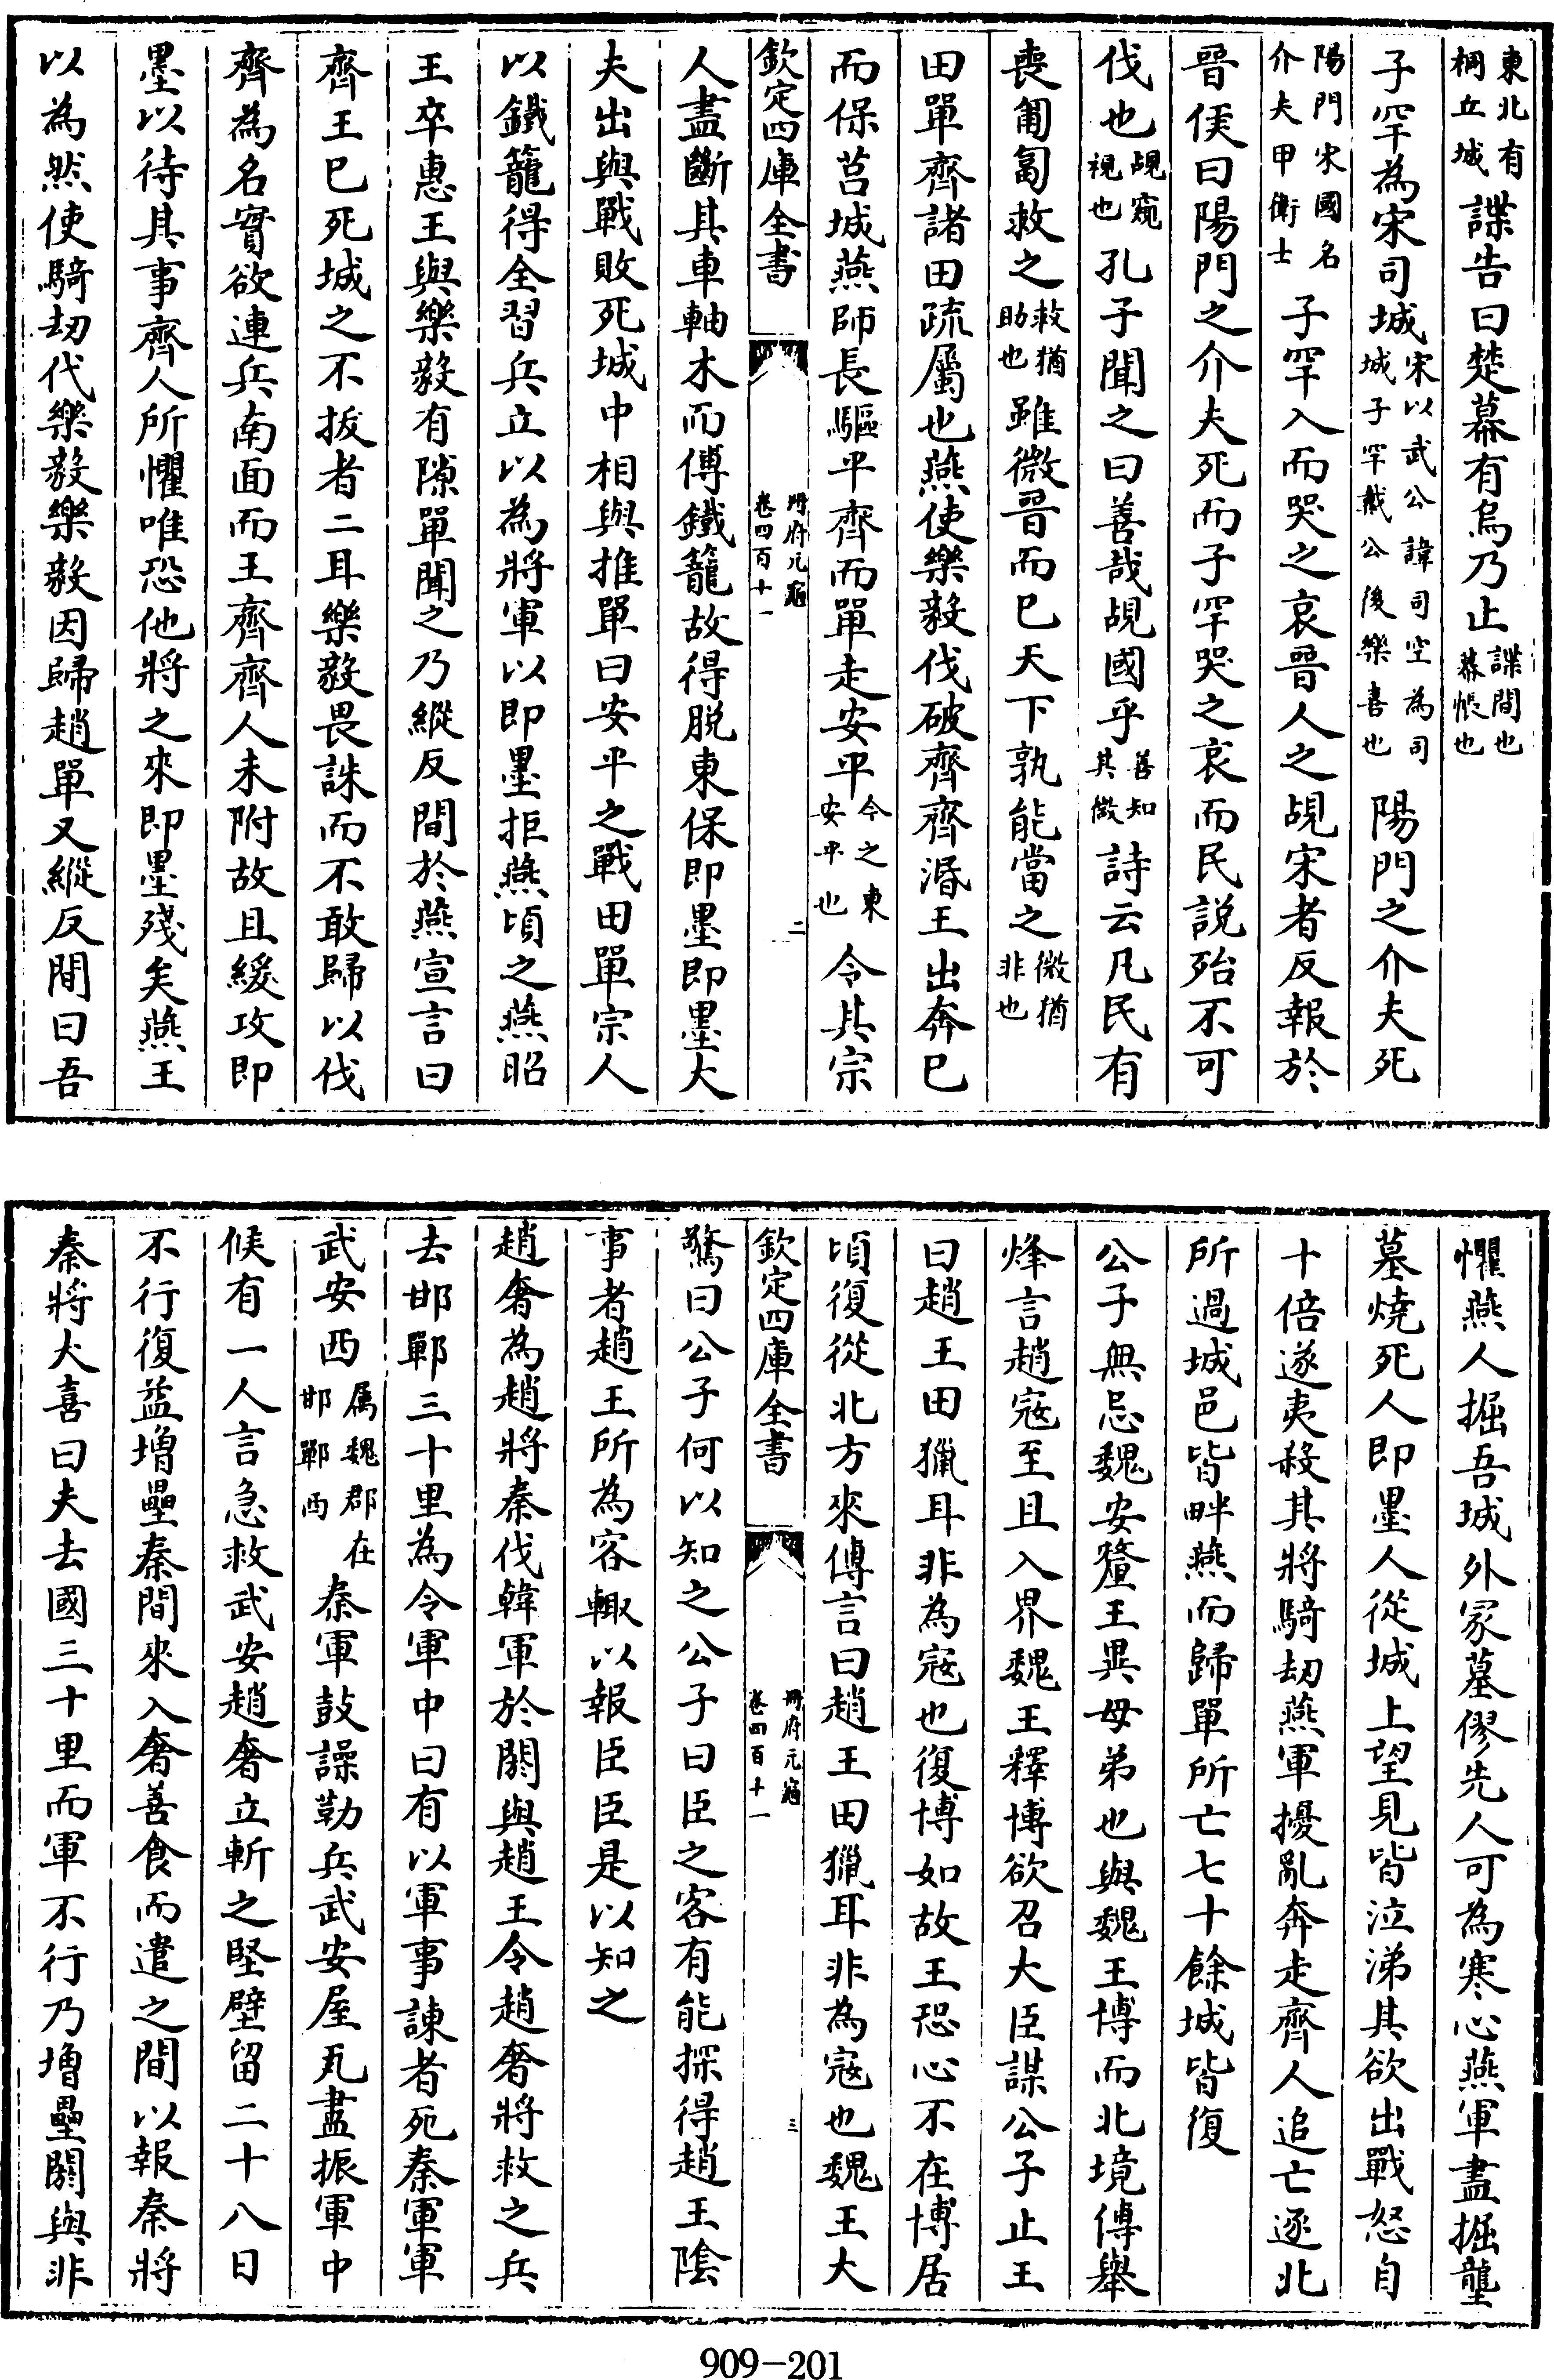 東北有桐丘城諜告曰楚幕有烏乃止諜間也幕帳也
子罕為宋司城宋以武公諱司空為司城子罕戴公後樂喜也陽門之介夫死
陽門宋國名介夫甲衛士子罕入而哭之哀晉人之覘宋者反報於
晉侯曰陽門之介夫死而子罕哭之哀而民說殆不可
伐也覘窺視也孔子聞之曰善哉覘國乎善知其微詩云凡民有
喪匍匐救之救猶助也雖微晉而已天下孰能當之微猶非也
田單齊諸田疏屬也燕使樂毅伐破齊齊湣王出奔已
而保莒城燕師長驅平齊而單走安平今之東安平也令其宗
欽定四庫全書 冊府元龜卷四百十一 二
人盡斷其車軸木而傅鐵籠故得脱東保即墨即墨大
夫出與戰敗死城中相與推單曰安平之戰田單宗人
以鐵籠得全習兵立以為將軍以即墨拒燕頃之燕昭
王卒惠王與樂毅有隙單聞之乃縱反間於燕宣言曰
齊王已死城之不拔者二耳樂毅畏誅而不敢歸以伐
齊為名實欲連兵南面而王齊齊人未附故且緩攻即
墨以待其事齊人所懼唯恐他將之來即墨殘矣燕王
以為然使騎刧代樂毅樂毅因歸趙單又縱反間曰吾
懼燕人掘吾城外冢墓僇先人可為寒心燕軍盡掘壟
墓燒死人即墨人從城上望見皆泣涕其欲出戰怒自
十倍遂夷殺其將騎刧燕軍擾亂奔走齊人追亡逐北
所過城邑皆畔燕而歸單所亡七十餘城皆復
公子無忌魏安釐王異母弟也與魏王博而北境傳舉
烽言趙宼至且入界魏王釋博欲召大臣謀公子止王
曰趙王田獵耳非為宼也復博如故王恐心不在博居
頃復從北方來傳言曰趙王田獵耳非為宼也魏王大
欽定四庫全書 冊府元龜卷四百十一 三
驚曰公子何以知之公子曰臣之客有能探得趙王陰
事者趙王所為客輙以報臣臣是以知之
趙奢為趙將秦伐韓軍於閼與趙王令趙奢將救之兵
去邯鄲三十里為令軍中曰有以軍事諫者死秦軍軍
武安西屬魏郡在邯鄲西秦軍鼓譟勒兵武安屋瓦盡振軍中
候有一人言急救武安趙奢立斬之堅壁留二十八日
不行復益增壘秦間來入奢善食而遣之間以報秦將
秦將大喜曰夫去國三十里而軍不行乃增壘閼與非
909-201